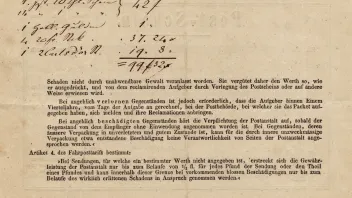 42 f
1.
37. 24
19. 3.
Schaden nicht durch unabwendbare Gewalt veranlasst worden. Sie vergütet daher den Werth so, wie
er ausgedrückt, und von dem reclamirenden Aufgeber durch Vorlegung des Postscheins oder auf andere
Weise erwiesen wird.
Bei angeblich verlornen Gegenständen ist jedoch erforderlich, dass die Aufgeber binnen Einem
Vierteljahre, vom Tage der Aufgabe an gerechnet, bei der Postbehörde, bei welcher sie das Packet auf-
gegeben haben, sich melden und ihre Reclamationen anbringen.
Bei angeblich beschädigten Gegenständen hört die Verpflichtung der Postanstalt auf, sobald der
Gegenstand von dem Empfänger ohne Einwendung angenommen worden ist. Bei Gegenständen, deren
äussere Verpackung in unverletztem und gutem Zustande ist, kann für die durch innere unzweckmässige
Verpackung etwa entstandene Beschädigung keine Verantwortlichkeit von Seiten der Postanstalt ange-
sprochen werden.
Artikel 4. der Fahrposttarif bestimmt:
Bei Sendungen, für welche ein bestimmter Werth nicht angegeben ist, erstreckt sich die Gewähr-
leistung der Postanstalt nur bis zum Belaufe von fl. für jedes Pfund der Sendung oder den Theil
eines Pfundes und kann innerhalb dieser Grenze bei vorkommenden blossen Beschädigungen nur bis zum
Belaufe des wirklich erlittenen Schadens in Anspruch genommen werden.